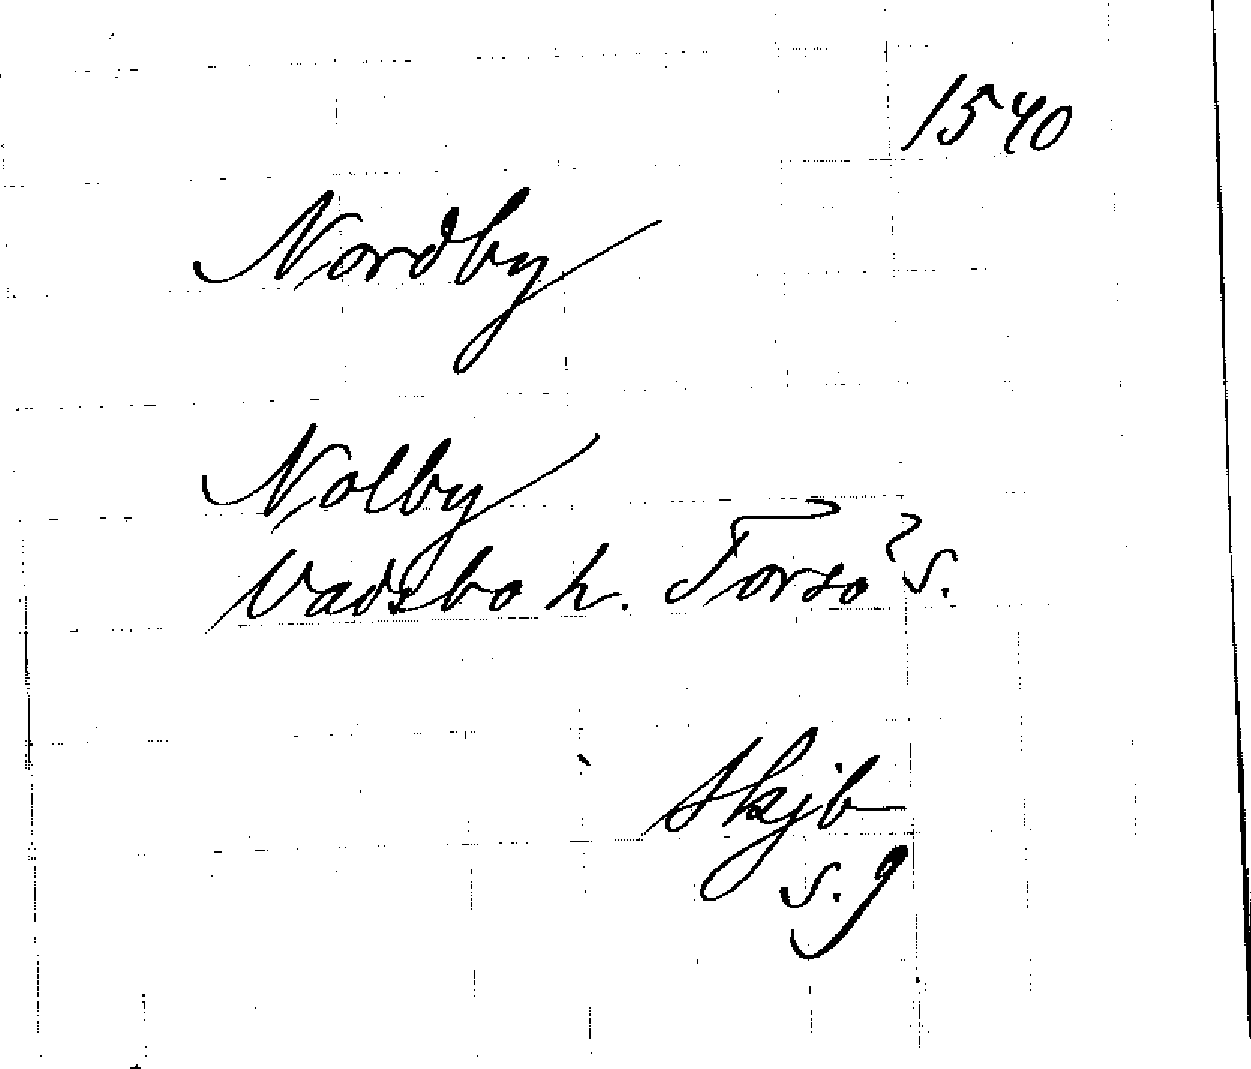 1540
Nordby
Nolby
Vadsbo h. Torsö s.
Skjb
s. 9